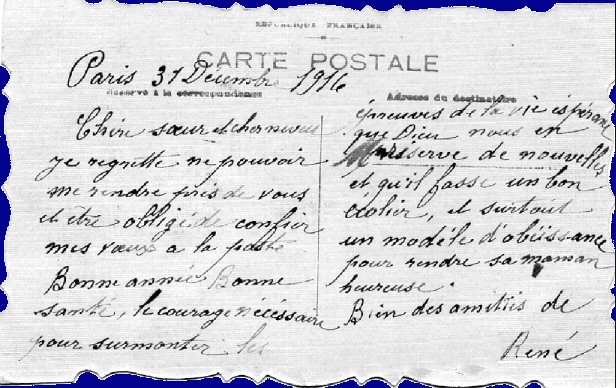 RÉPUBLIQUE FRANÇAISE
CARTE POSTALE
Paris 31 Décembre 1916
Réservé à la correspondance
Adresse du destinataire
Chère sœur et cher neveu
je regrette ne pouvoir
me rendre près de vous
et être obligé de confier
mes vœux a la poste
Bonne année Bonne
santé, le courage nécéssaire
pour surmonter les
épreuves de la vie espérant
que Dieu nous en
préserve de nouvelles
et qu'il fasse un bon
écolier, et surtout
un modèle d'obéissance
pour rendre sa maman
heureuse.
Bien des amitiés de
René